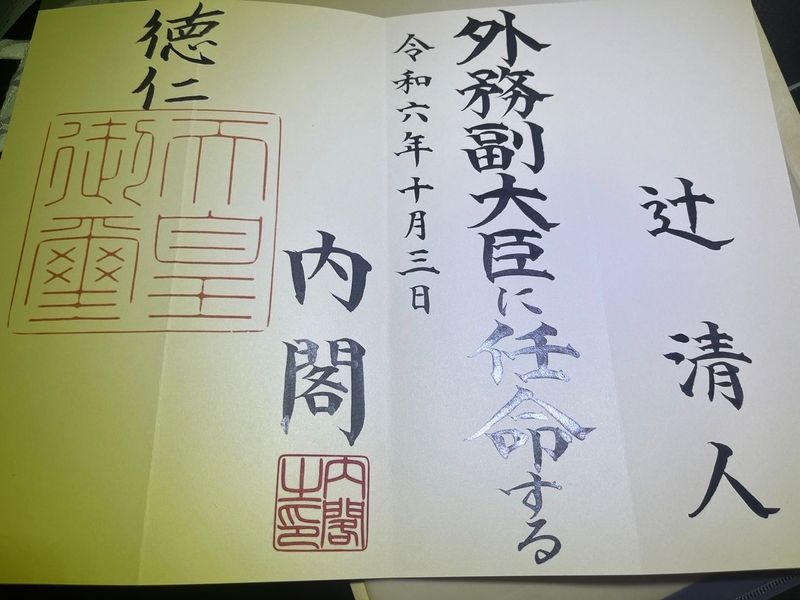 辻清人
外務副大臣に任命する
令和六年十月三日
内閣
内閣之印
徳仁
天皇御璽